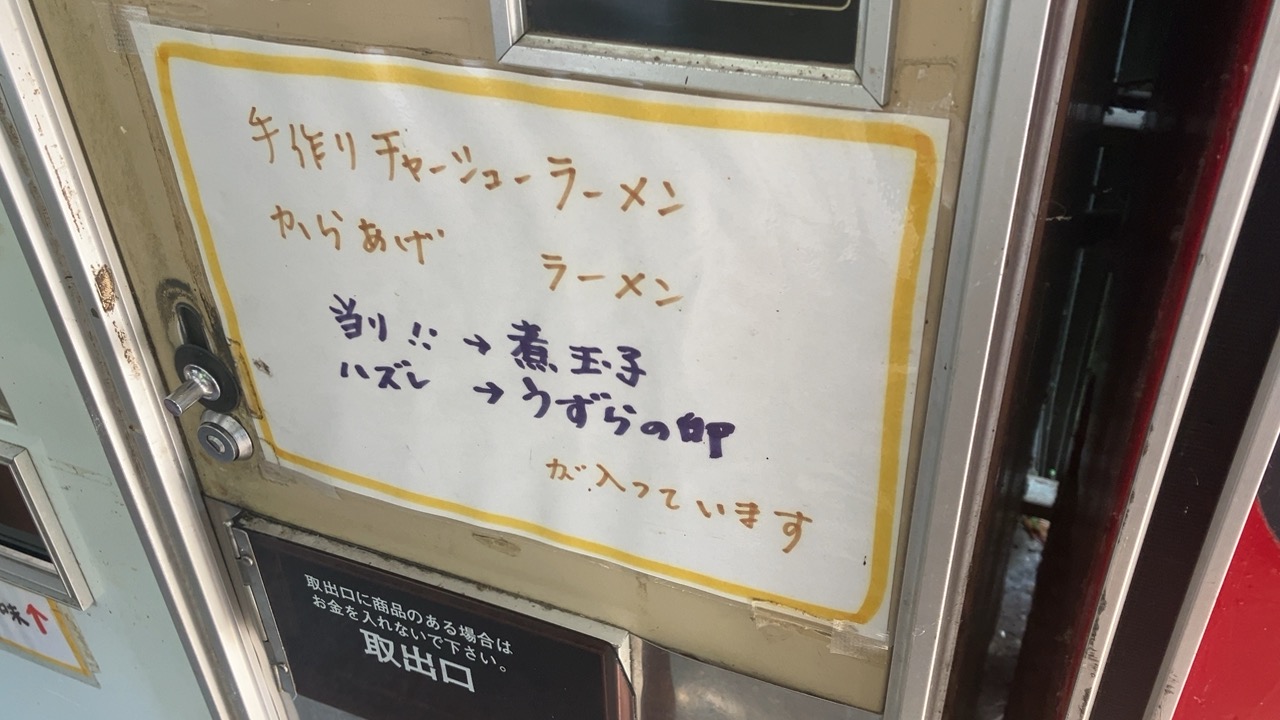 手作りチャーシューラーメン
からあげ ラーメン
当り!! → 煮玉子
ハズレ → うずらの卵
が入っています
取出口に商品のある場合は
お金を入れないで下さい。
取出口
味↑